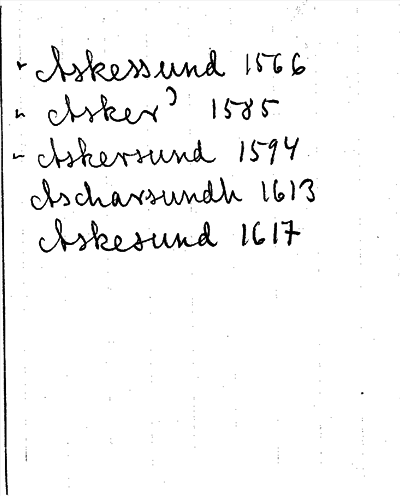 Askessund 1566
Asker' 1585
Askersund 1594
Ascharsundh 1613
Askesund 1617